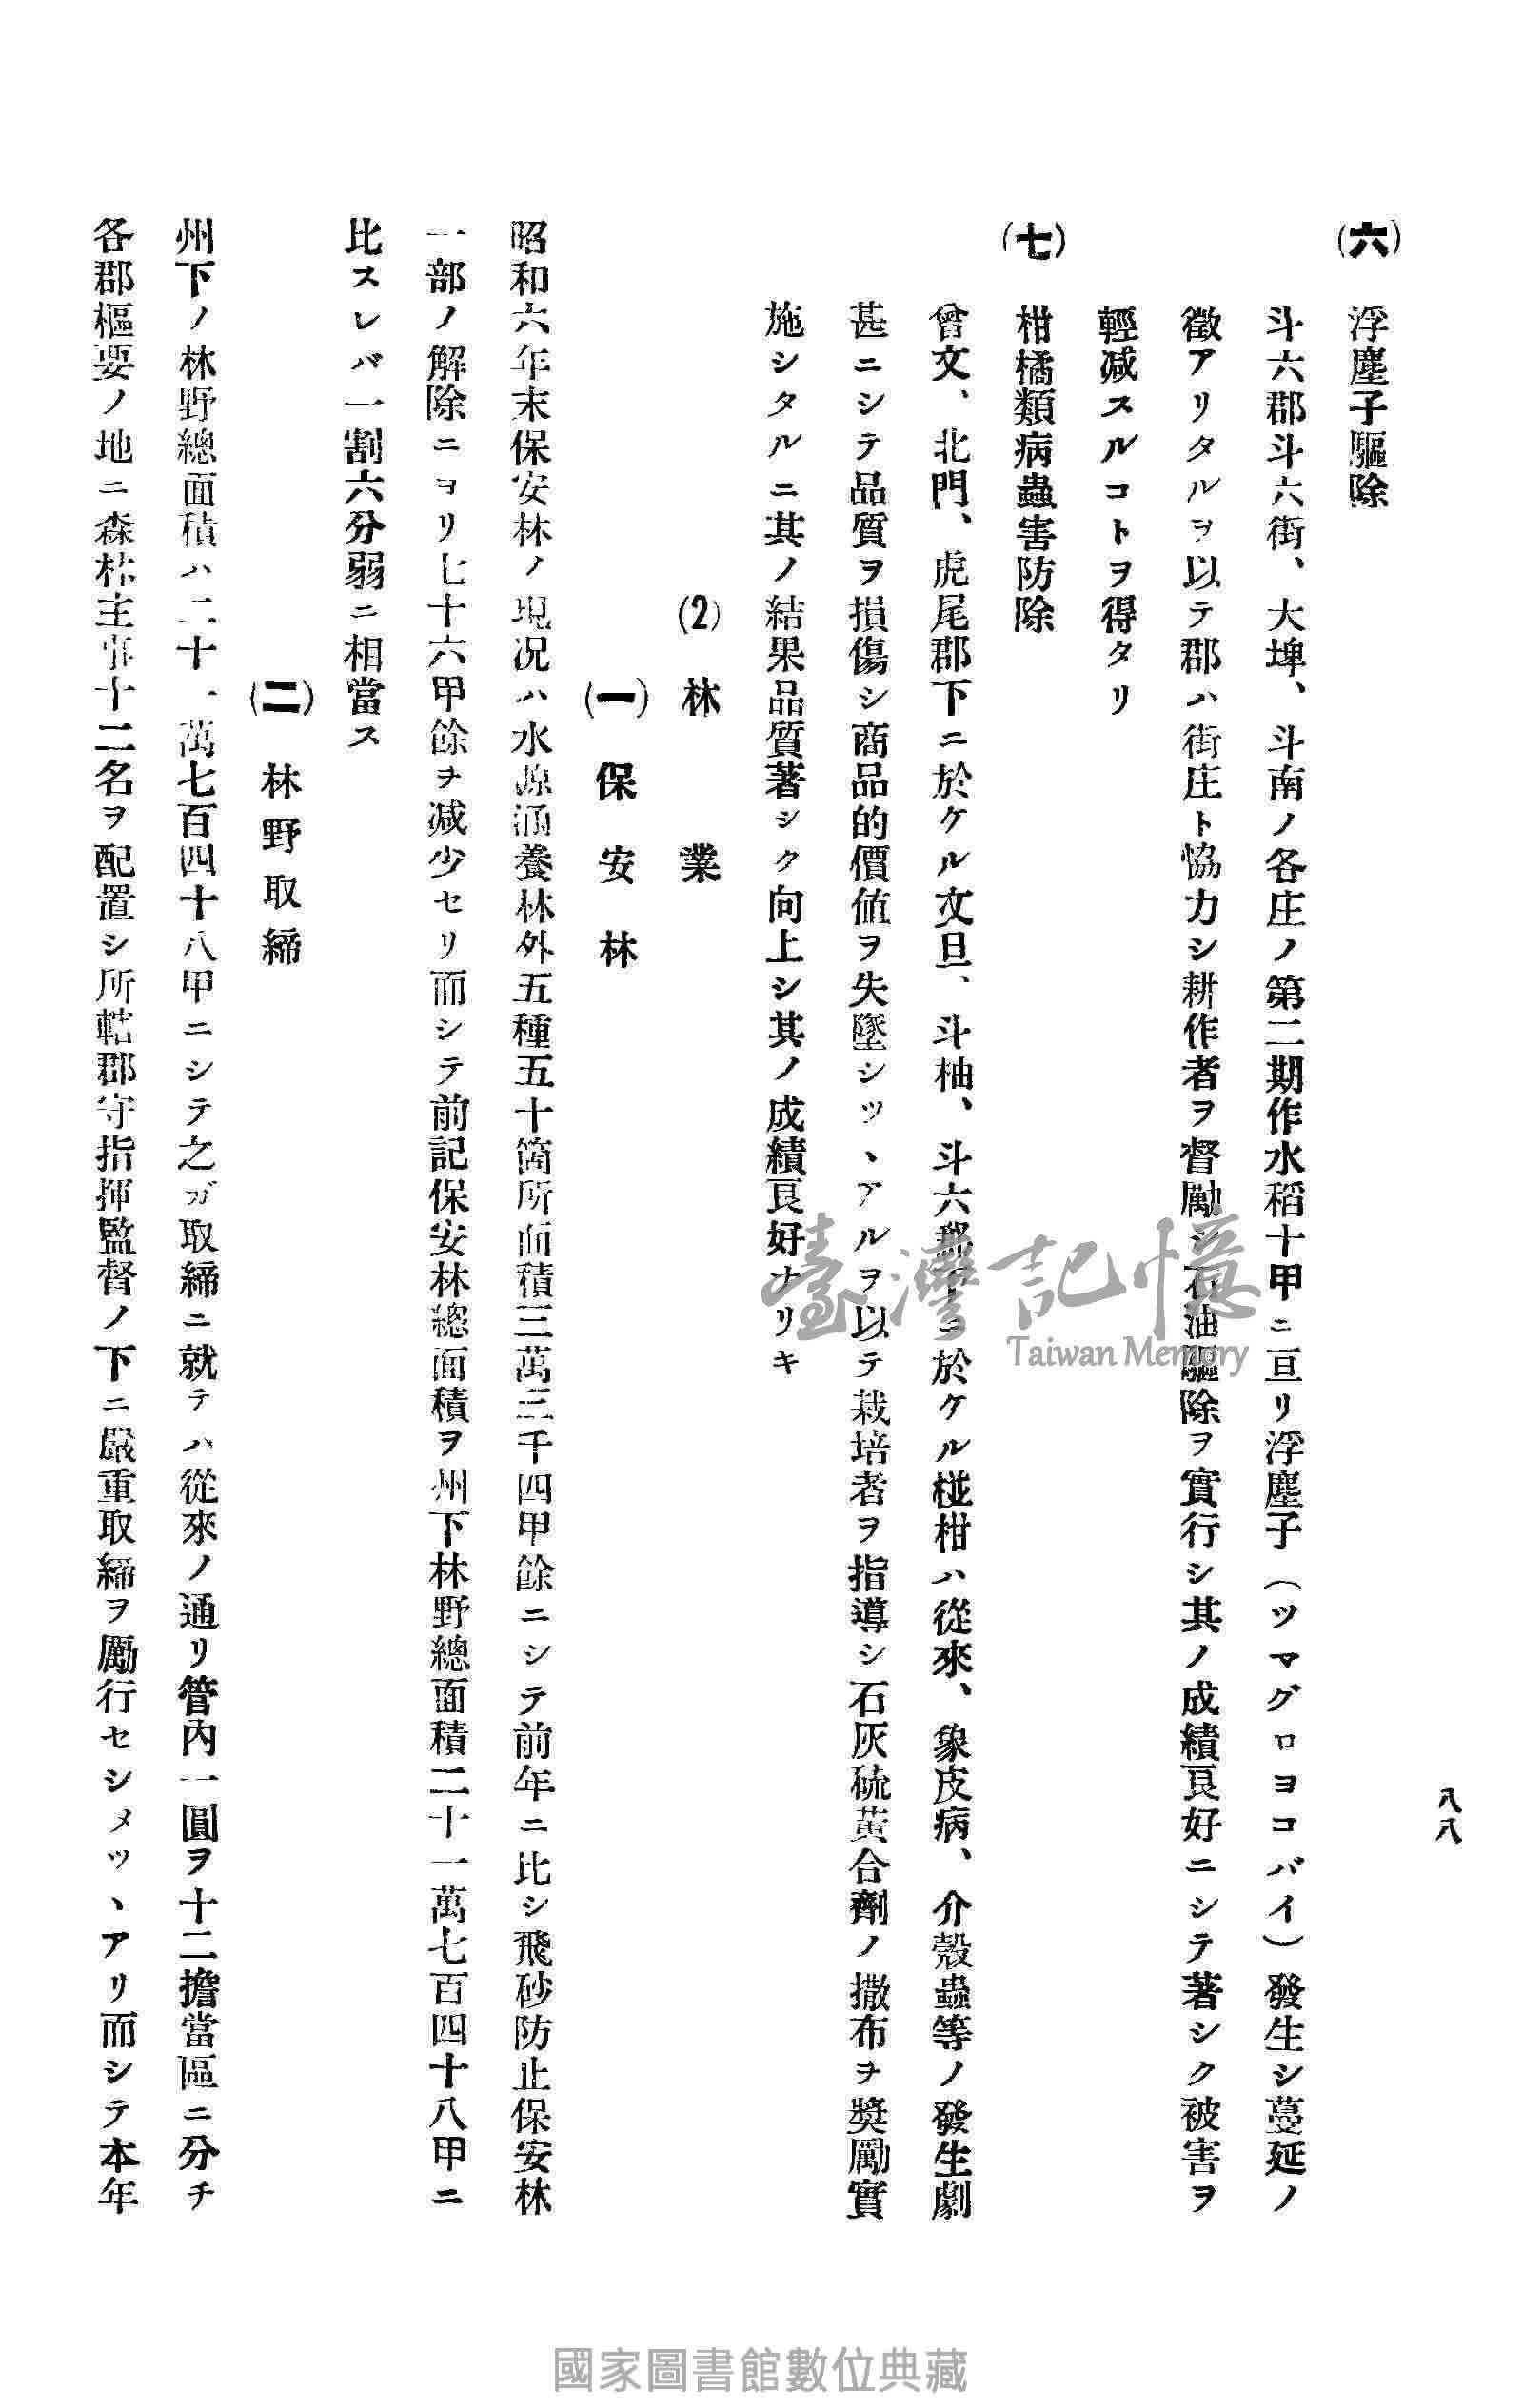 八八
(六) 浮塵子驅除
斗六郡斗六街、大埤、斗南ノ各庄ノ第二期作水稻十甲ニ亘リ浮塵子(ツマグロヨコバイ)發生シ蔓延ノ
徵アリタルヲ以テ郡ハ街庄ト恊力シ耕作者ヲ督勵シ石油驅除ヲ實行シ其ノ成績良好ニシテ著シク被害ヲ
輕減スルコトヲ得タリ
(七) 柑橘類病蟲害防除
曾文、北門、虎尾郡下ニ於ケル文旦、斗柚、斗六郡下ニ於ケル椪柑ハ從來、象皮病、介殼蟲等ノ發生劇
甚ニシテ品質ヲ損傷シ商品的價値ヲ失墜シツヽアルヲ以テ栽培者ヲ指導シ石灰硫黃合劑ノ撒布ヲ奬勵實
施シタルニ其ノ結果品質著シク向上シ其ノ成績良好ナリキ
(2) 林業
(一) 保安林
昭和六年末保安林ノ現况ハ水源涵養林外五種五十箇所面積三萬三千四甲餘ニシテ前年ニ比シ飛砂防止保安林
一部ノ解除ニヨリ七十六甲餘ヲ減少セリ而シテ前記保安林總面積ヲ州下林野總面積二十一萬七百四十八甲ニ
比スレバ一割六分弱ニ相當ス
(二) 林野取締
州下ノ林野總面積ハ二十一萬七百四十八甲ニシテ之ガ取締ニ就テハ從來ノ通リ管內一圓ヲ十二擔當區ニ分チ
各郡樞要ノ地ニ森林主事十二名ヲ配置シ所轄郡守指揮監督ノ下ニ嚴重取締ヲ勵行セシメツヽアリ而シテ本年
臺灣記憶
Taiwan Memory
國家圖書館數位典藏